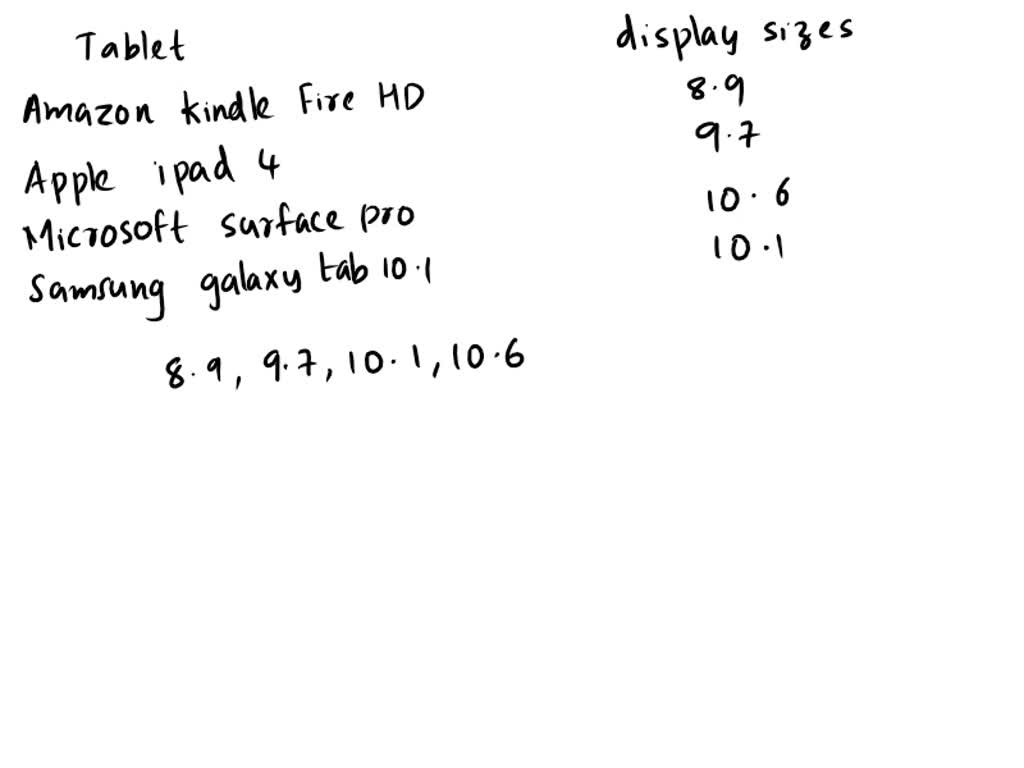 Tablet display sizes
Amazon kindle Fire HD 8.9
Apple ipad 4 9.7
Microsoft surface pro 10.6
Samsung galaxy tab 10.1 10.1
8.9, 9.7, 10.1, 10.6